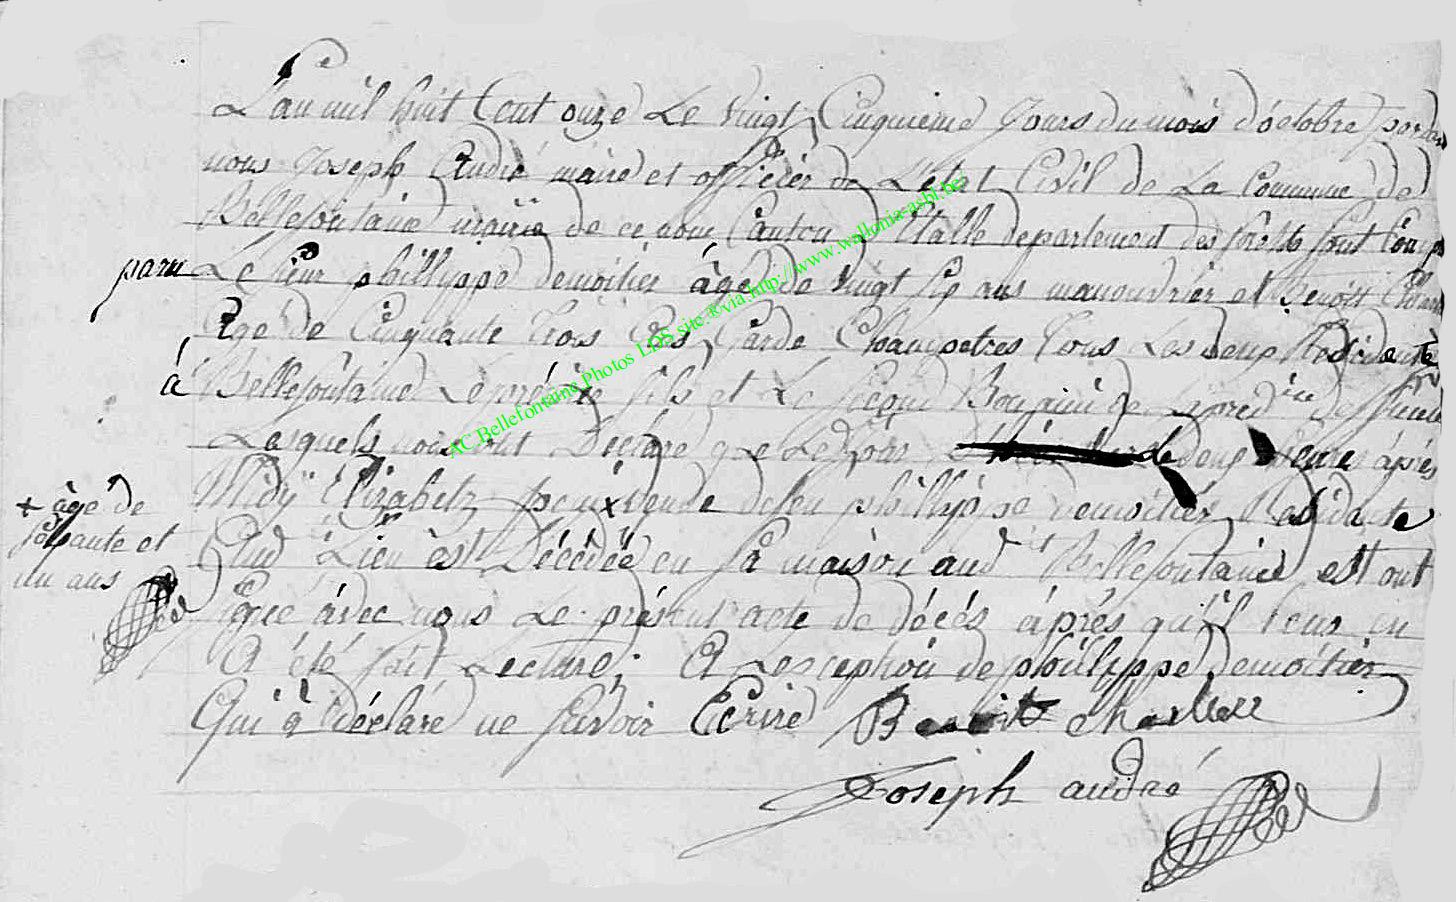 L'an mil huit Cent onze Le vingt Cinquieme Jours du mois d'octobre pardevant
nous Joseph André maire et officier de L'état Civil de La Commune de
Bellefontaine mairie de ce nom Canton d'Etalle departement des forêts sont Com
paru Le sieur phillippe demoitier âgé de vingt six ans manouvrier et Benoit
Agé de Cinquante trois ans Garde Champetres tous Les deux Residente
à Bellefontaine Le prémier fils et Le second
Lesquels nous ont Déclaré que deux heures áprés
Midy Elizabetz veuve de feu phillippe demoitier Residante
Aud Lieu est Décédée en sa maison aud Bellefontaine est ont
signé avec nous Le présent acte de décés áprés qu'il leur en
A été fait Lecture; A L'exception de philippe Demoitier
Qui a déclaré ne savoir Ecrire Benoit
Joseph andré
+ âgé de
soissante et
un ans
AC.Bellefontaine.Photos LDS site ®via http://www.wallonia-asbl.be/